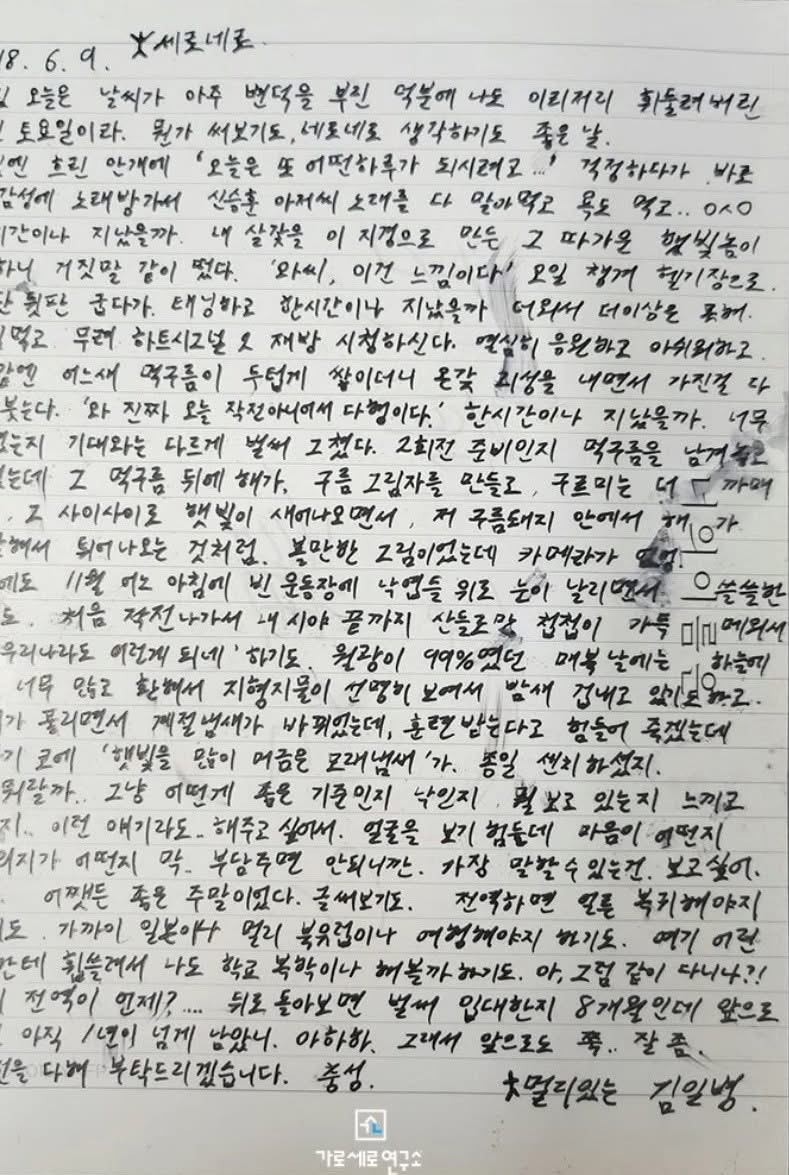 18. 6. 9. 大세로네로.
오늘은 날씨가 아주 변덕을 부린 덕분에 나도 이리저리 휘둘려버린
토요일이라. 뭔가 써보기도, 세로네로 생각하기도 좋은 날.
엔 흐린 안개에 '오늘은 또 어떤하루가 되시려고...' 걱정하다가 바로
감성에 노래방가서 신승훈 아저씨 노래를 다 말아먹고 욕도 먹고.. ㅇㅅㅇ
시간이나 지났을까. 내 살갗을 이 지경으로 만든 그 따가운 햇빛놈이
하니 거짓말 같이 떴다. '와씨, 이건 느낌이다' 오일 챙겨 헬기장으로.
뒷판 굽다가. 태닝하고 한시간이나 지났을까 더워서 더이상은 못해.
먹고 무려 하트시그널 2 재방 시청하신다. 열심히 응원하고 아쉬워하고.
밤엔 어느새 먹구름이 두텁게 쌓이더니 온갖 괴성을 내면서 가진걸 다
붓는다. '와 진짜 오늘 작전아니어서 다행이다.' 한시간이나 지났을까. 너무
는지 기대와는 다르게 벌써 그쳤다. 2회전 준비인지 먹구름을 남겨놓고
는데 그 먹구름 뒤에 해가, 구름 그림자를 만들고, 구르미는 더 까매
, 그 사이사이로 햇빛이 새어나오면서, 저 구름돼지 안에서 해가
해서 튀어나오는 것처럼. 볼만한 그림이었는데 카메라가
에도 11월 어느 아침에 빈 운동장에 낙엽들 위로 눈이 날리면서 쓸쓸한
도. 처음 작전나가서 내 시야 끝까지 산들로만 첩첩이 가득 메워서
우리나라도 이렇게 되네' 하기도. 월광이 99%였던 매복 날에는 하늘에
너무 많고 환해서 지형지물이 선명히 보여서 밤새 겁내고 있기도하고..
가 풀리면서 계절냄새가 바뀌었는데, 훈련받는다고 힘들어 죽겠는데
기 코에 '햇빛을 많이 머금은 모래냄새'가. 종일 센치하셨지.
뭐랄까.. 그냥 어떤게 좋은 기준인지 낙인지 뭘 보고 있는지 느끼고
지.. 이런 얘기라도.. 해주고 싶어서. 얼굴을 보기 힘든데 마음이 어떤지
의지가 어떤지 막.. 부담주면 안되니깐. 가장 말할 수 있는건. 보고싶어.
. 어쨋든 좋은 주말이었다. 글써보기도. 전역하면 얼른 복귀해야지
도. 가까이 일본이나 멀리 북유럽이나 여행해야지 하기도. 여기 어린
한테 휩쓸려서 나도 학교 복학이나 해볼까하기도. 아, 그럼 같이 다니나?!
전역이 언제?.... 뒤로 돌아보면 벌써 입대한지 8개월인데 앞으로
아직 1년이 넘게 남았니. 아하하. 그래서 앞으로도 쭉.. 잘 좀.
을 다해 부탁드리겠습니다. 충성.
大멀리있는 김일병.
그의 믿음
가로세로연구소